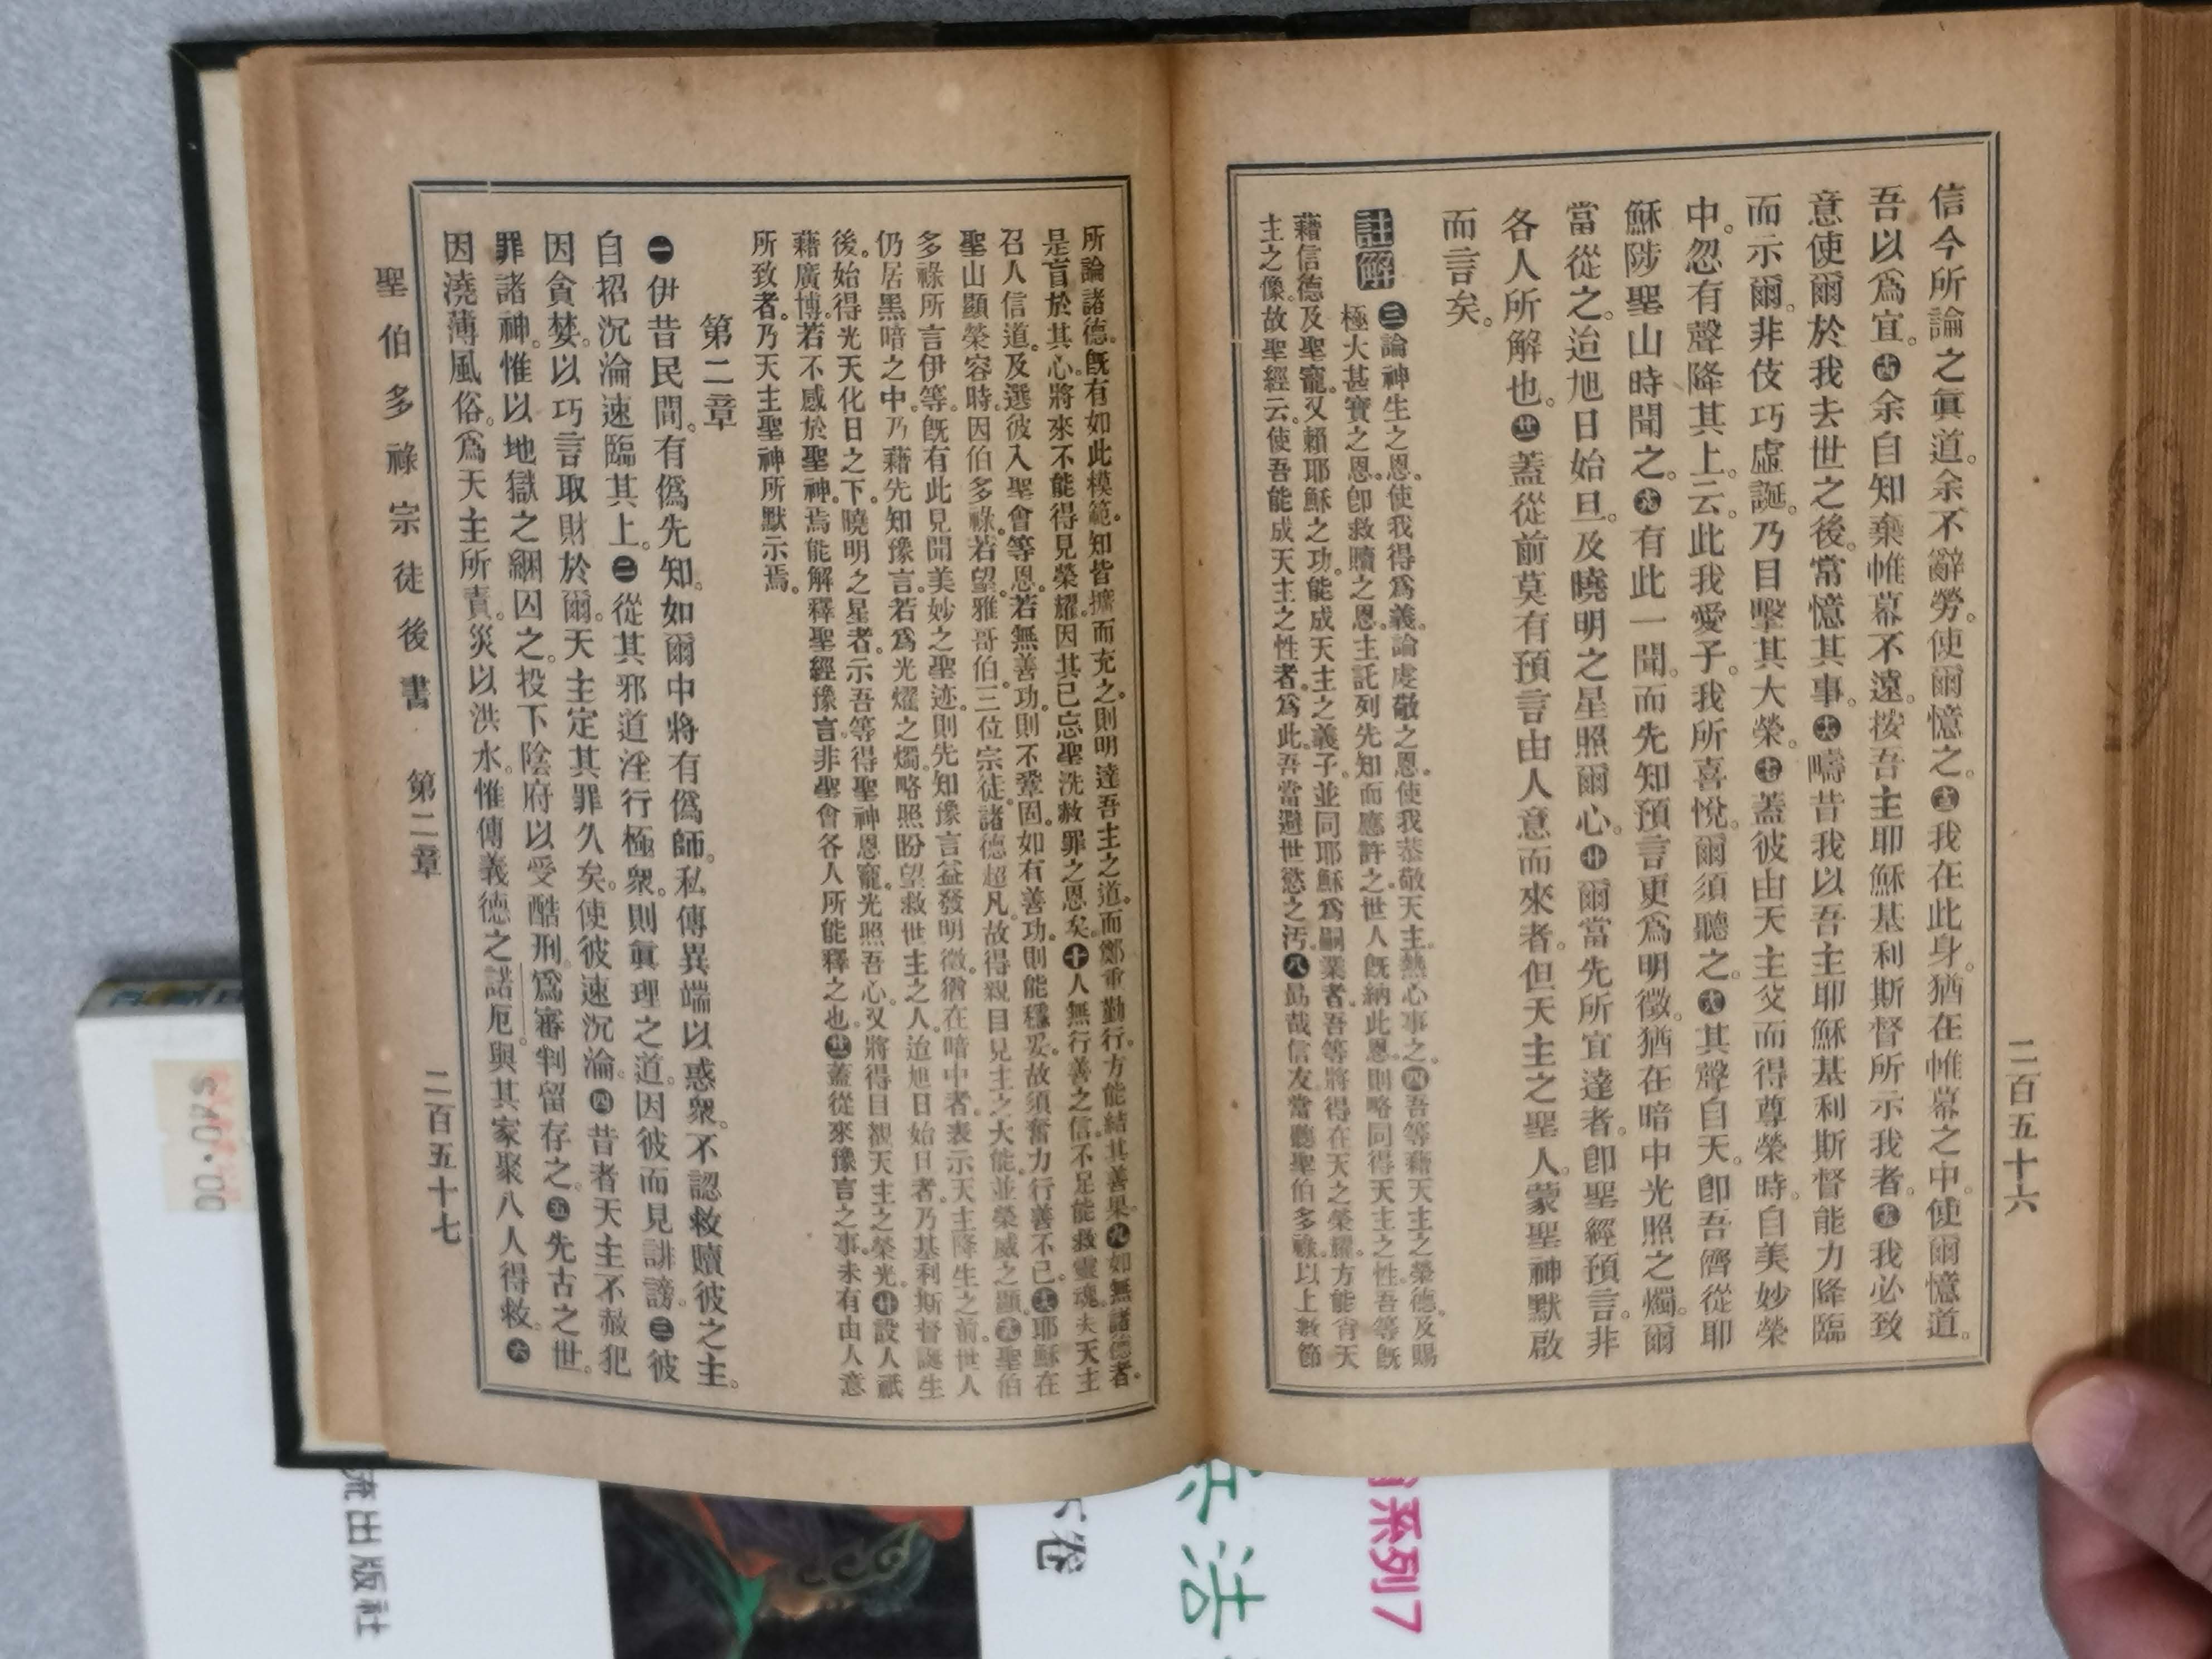 二百五十六
信今所論之眞道。余不辭勞。使爾憶之。十三我在此身。猶在帷幕之中。使爾憶道。
吾以爲宜。十四余自知棄帷幕不遠。按吾主耶穌基利斯督所示我者。十五我必致
意使爾於我去世之後。常憶其事。十六疇昔我以吾主耶穌基利斯督能力降臨
而示爾。非伎巧虛誕。乃目擊其大榮。十七蓋彼由天主父而得尊榮時。自美妙榮
中。忽有聲降其上。云。此我愛子。我所喜悅。爾須聽之。十八其聲自天。卽吾儕從耶
穌陟聖山時聞之。十九有此一聞。而先知預言更爲明徵。猶在暗中光照之燭。爾
當從之。迨旭日始旦。及曉明之星照爾心。廿爾當先所宜達者。卽聖經預言。非
各人所解也。廿一蓋從前莫有預言由人意而來者。但天主之聖人。蒙聖神默啟
而言矣。
註解 三論神生之恩。使我得爲義。論虔敬之恩。使我恭敬天主。熱心事之。四吾等藉天主之榮德。及賜
極大甚寶之恩。卽救贖之恩。主託列先知而應許之。世人旣納此恩。則略同得天主之性。吾等旣
藉信德及聖寵。又賴耶穌之功。能成天主之義子。並同耶穌爲嗣業者。吾等將得在天之榮耀。方能肖天
主之像。故聖經云。使吾能成天主之性者。爲此。吾當避世慾之汚。八勗哉信友。當聽聖伯多祿。以上數節
所論諸德。旣有如此模範。知皆擴而充之。則明達吾主之道。而鄭重勤行。方能結其善果。九如無諸德者。
是盲於其心。將來不能得見榮耀。因其已忘聖洗赦罪之恩矣。十人無行善之信。不足能救靈魂。夫天主
召人信道。及選彼入聖會等恩。若無善功。則不鞏固。如有善功。則能穩妥。故須奮力行善不已。十六耶穌在
聖山顯榮容時。因伯多祿。若望。雅哥伯。三位宗徒。諸德超凡。故得親目見主之大能。並榮威之顯。十九聖伯
多祿所言伊等。旣有此見聞美妙之聖迹。則先知豫言益發明徵。猶在暗中者。表示天主降生之前。世人
仍居黑暗之中。乃藉先知豫言。若爲光耀之燭。略照盼望救世主之人。迨旭日始日者。乃基利斯督誕生
後。始得光天化日之下。曉明之星者。示吾等得聖神恩寵。光照吾心。又將得目覩天主之榮光。廿設人祇
藉廣博。若不感於聖神。焉能解釋聖經豫言。非聖會各人所能釋之也。廿一蓋從來豫言之事。未有由人意
所致者。乃天主聖神所默示焉。
第二章
一伊昔民間。有僞先知。如爾中將有僞師。私傳異端以惑衆。不認救贖彼之主。
自招沉淪速臨其上。二從其邪道淫行極衆。則眞理之道。因彼而見誹謗。三彼
因貪婪。以巧言取財於爾。天主定其罪久矣。使彼速沉淪。四昔者天主不赦犯
罪諸神。惟以地獄之綑囚之。投下陰府以受酷刑。爲審判留存之。五先古之世。
因澆薄風俗。爲天主所責。災以洪水。惟傳義德之諾厄。與其家聚八人得救。六
聖伯多祿宗徒後書 第二章 二百五十七
流出版社
下卷
兵法
系列7